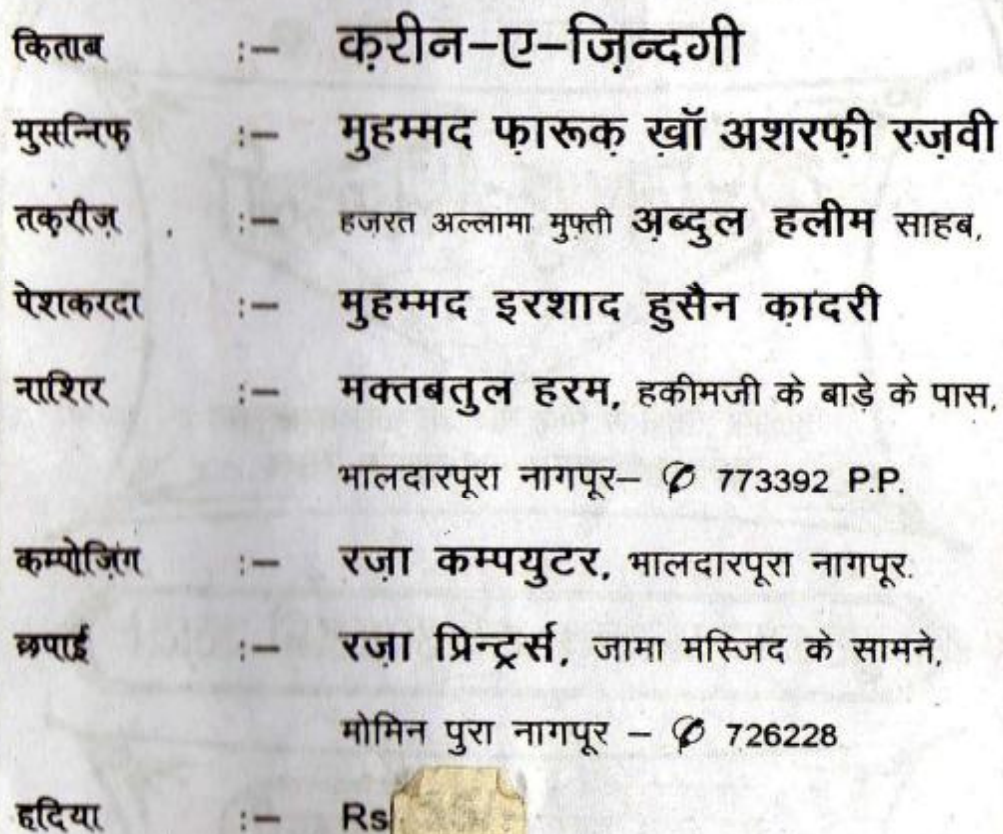 किताब :– क़रीन–ए–ज़िन्दगी
मुसन्निफ़ :– मुहम्मद फ़ारूक़ ख़ॉ अशरफ़ी रज़वी
तक़रीज़ :– हज़रत अल्लामा मुफ़्ती अ़ब्दुल हलीम साहब,
पेशकरदा :– मुहम्मद इरशाद हुसैन क़ादरी
नाशिर :– मक्तबतुल हरम, हकीमजी के बाड़े के पास,
भालदारपूरा नागपूर– ✆ 773392 P.P.
कम्पोज़िंग :– रज़ा कम्पयुटर, भालदारपूरा नागपूर.
छपाई :– रज़ा प्रिन्ट्रर्स, जामा मस्जिद के सामने,
मोमिन पुरा नागपूर – ✆ 726228
हदिया :– Rs